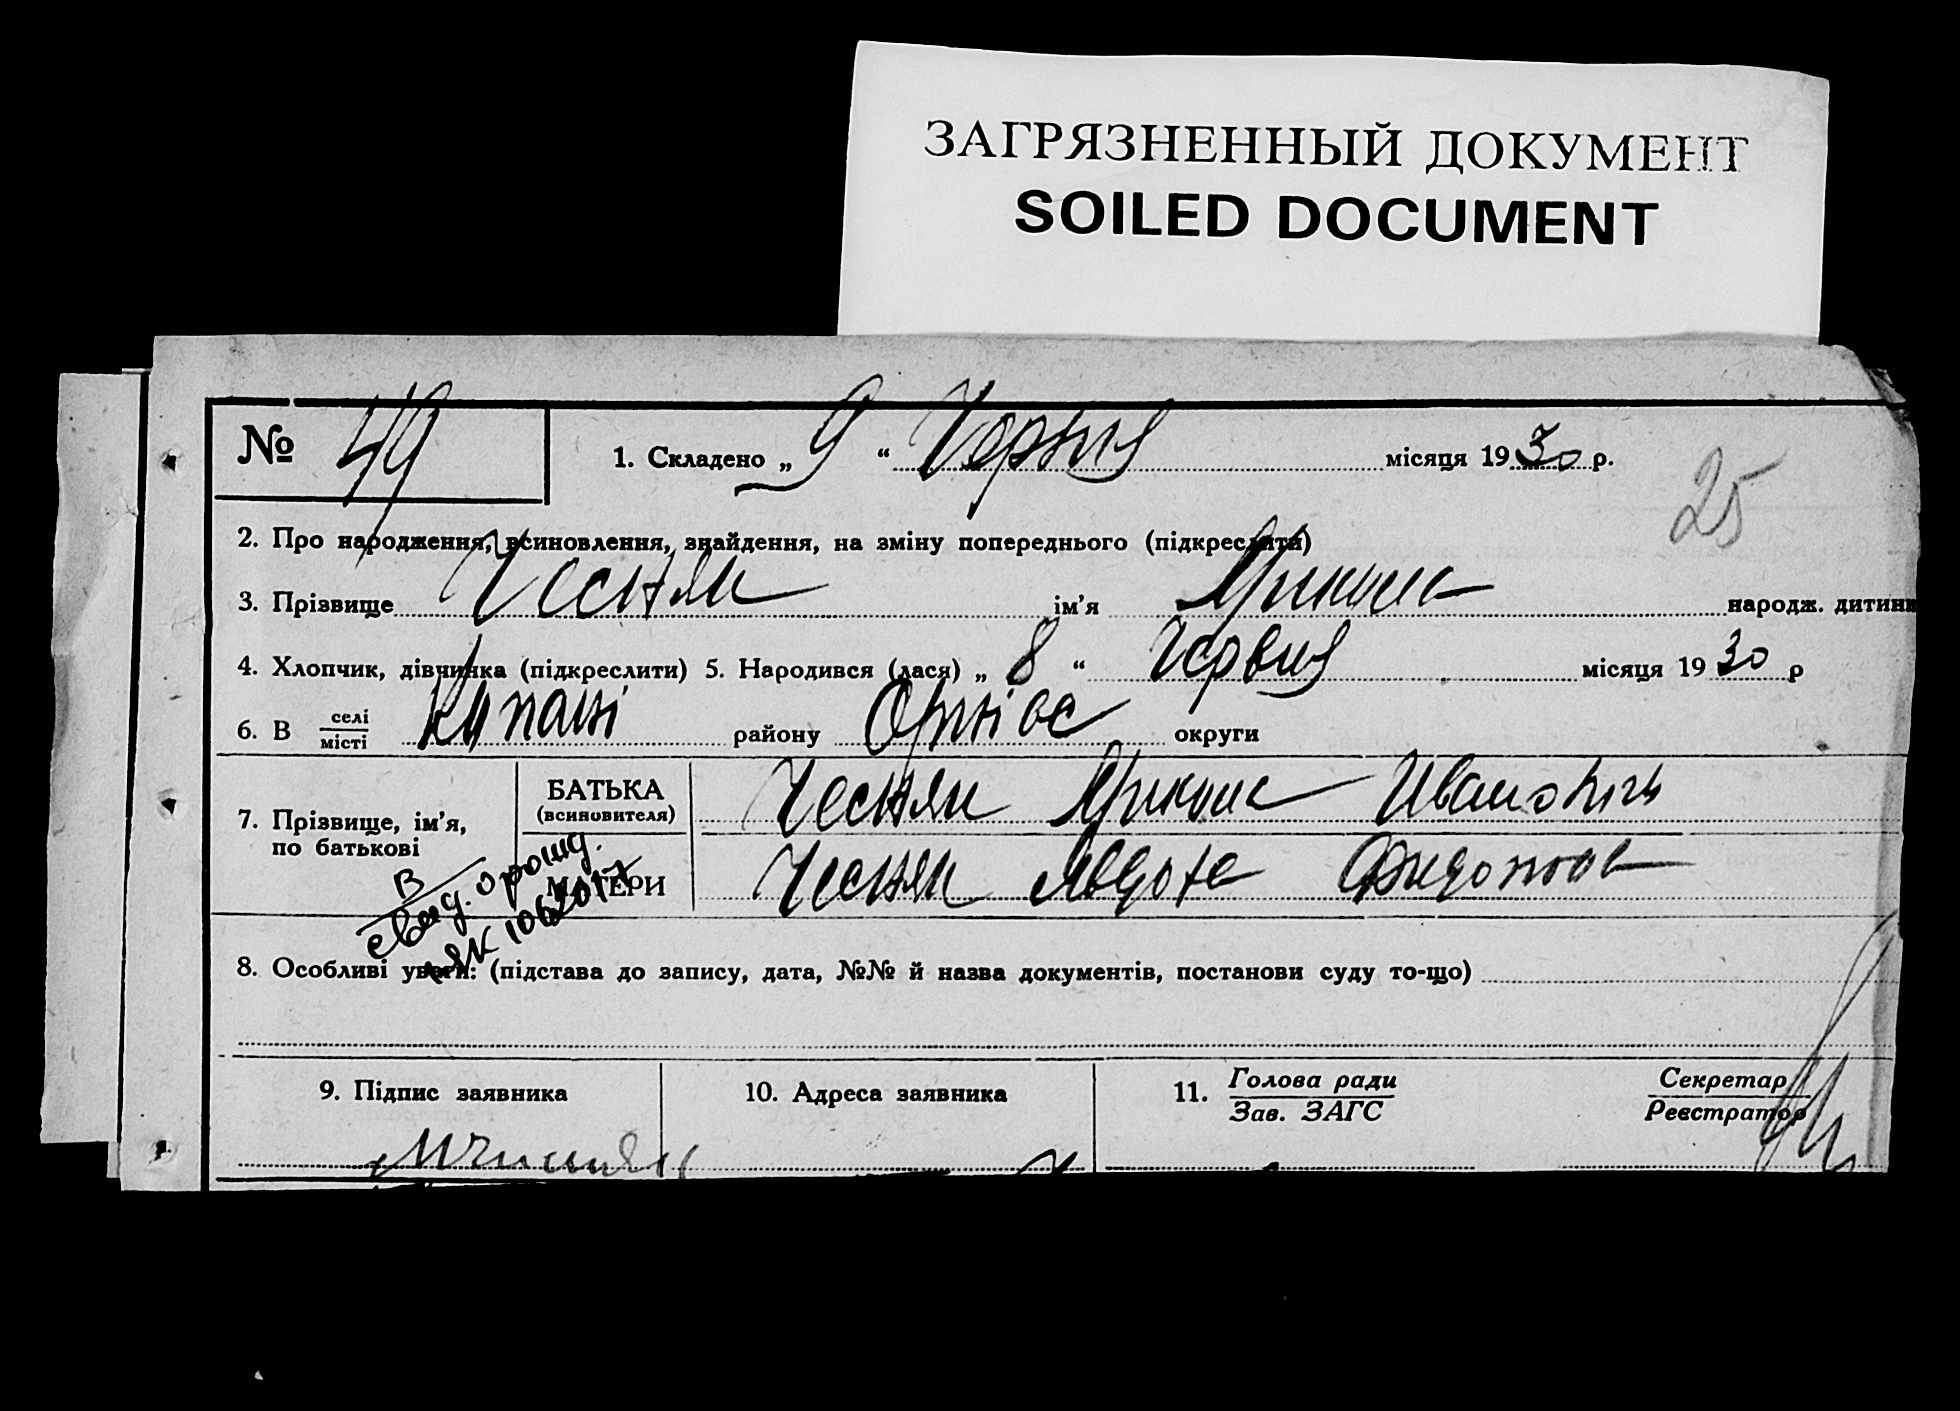 ЗАГРЯЗНЕННЫЙ ДОКУМЕНТ
SOILED DOCUMENT
№ 49
1. Складено „ 9 “ Червня місяця 1930 р.
25
2. Про народження, всиновлення, знайдення, на зміну попереднього (підкреслити)
3. Прізвище Чесняк ім'я народж. дитини
4. Хлопчик, дівчинка (підкреслити) 5. Народився (лася) „ 8 “ Червня місяця 1930 р
6. В селі місті району округи
7. Прізвище, ім'я, по батькові
БАТЬКА (всиновителя) Чесняк Иванович
МАТЕРИ Чесняк Явдоха
В свид. о рожд.
8. Особливі уваги: (підстава до запису, дата, №№ й назва документів, постанови суду то-що)
9. Підпис заявника
10. Адреса заявника
11. Голова ради Зав. ЗАГС
Секретар Реєстратор